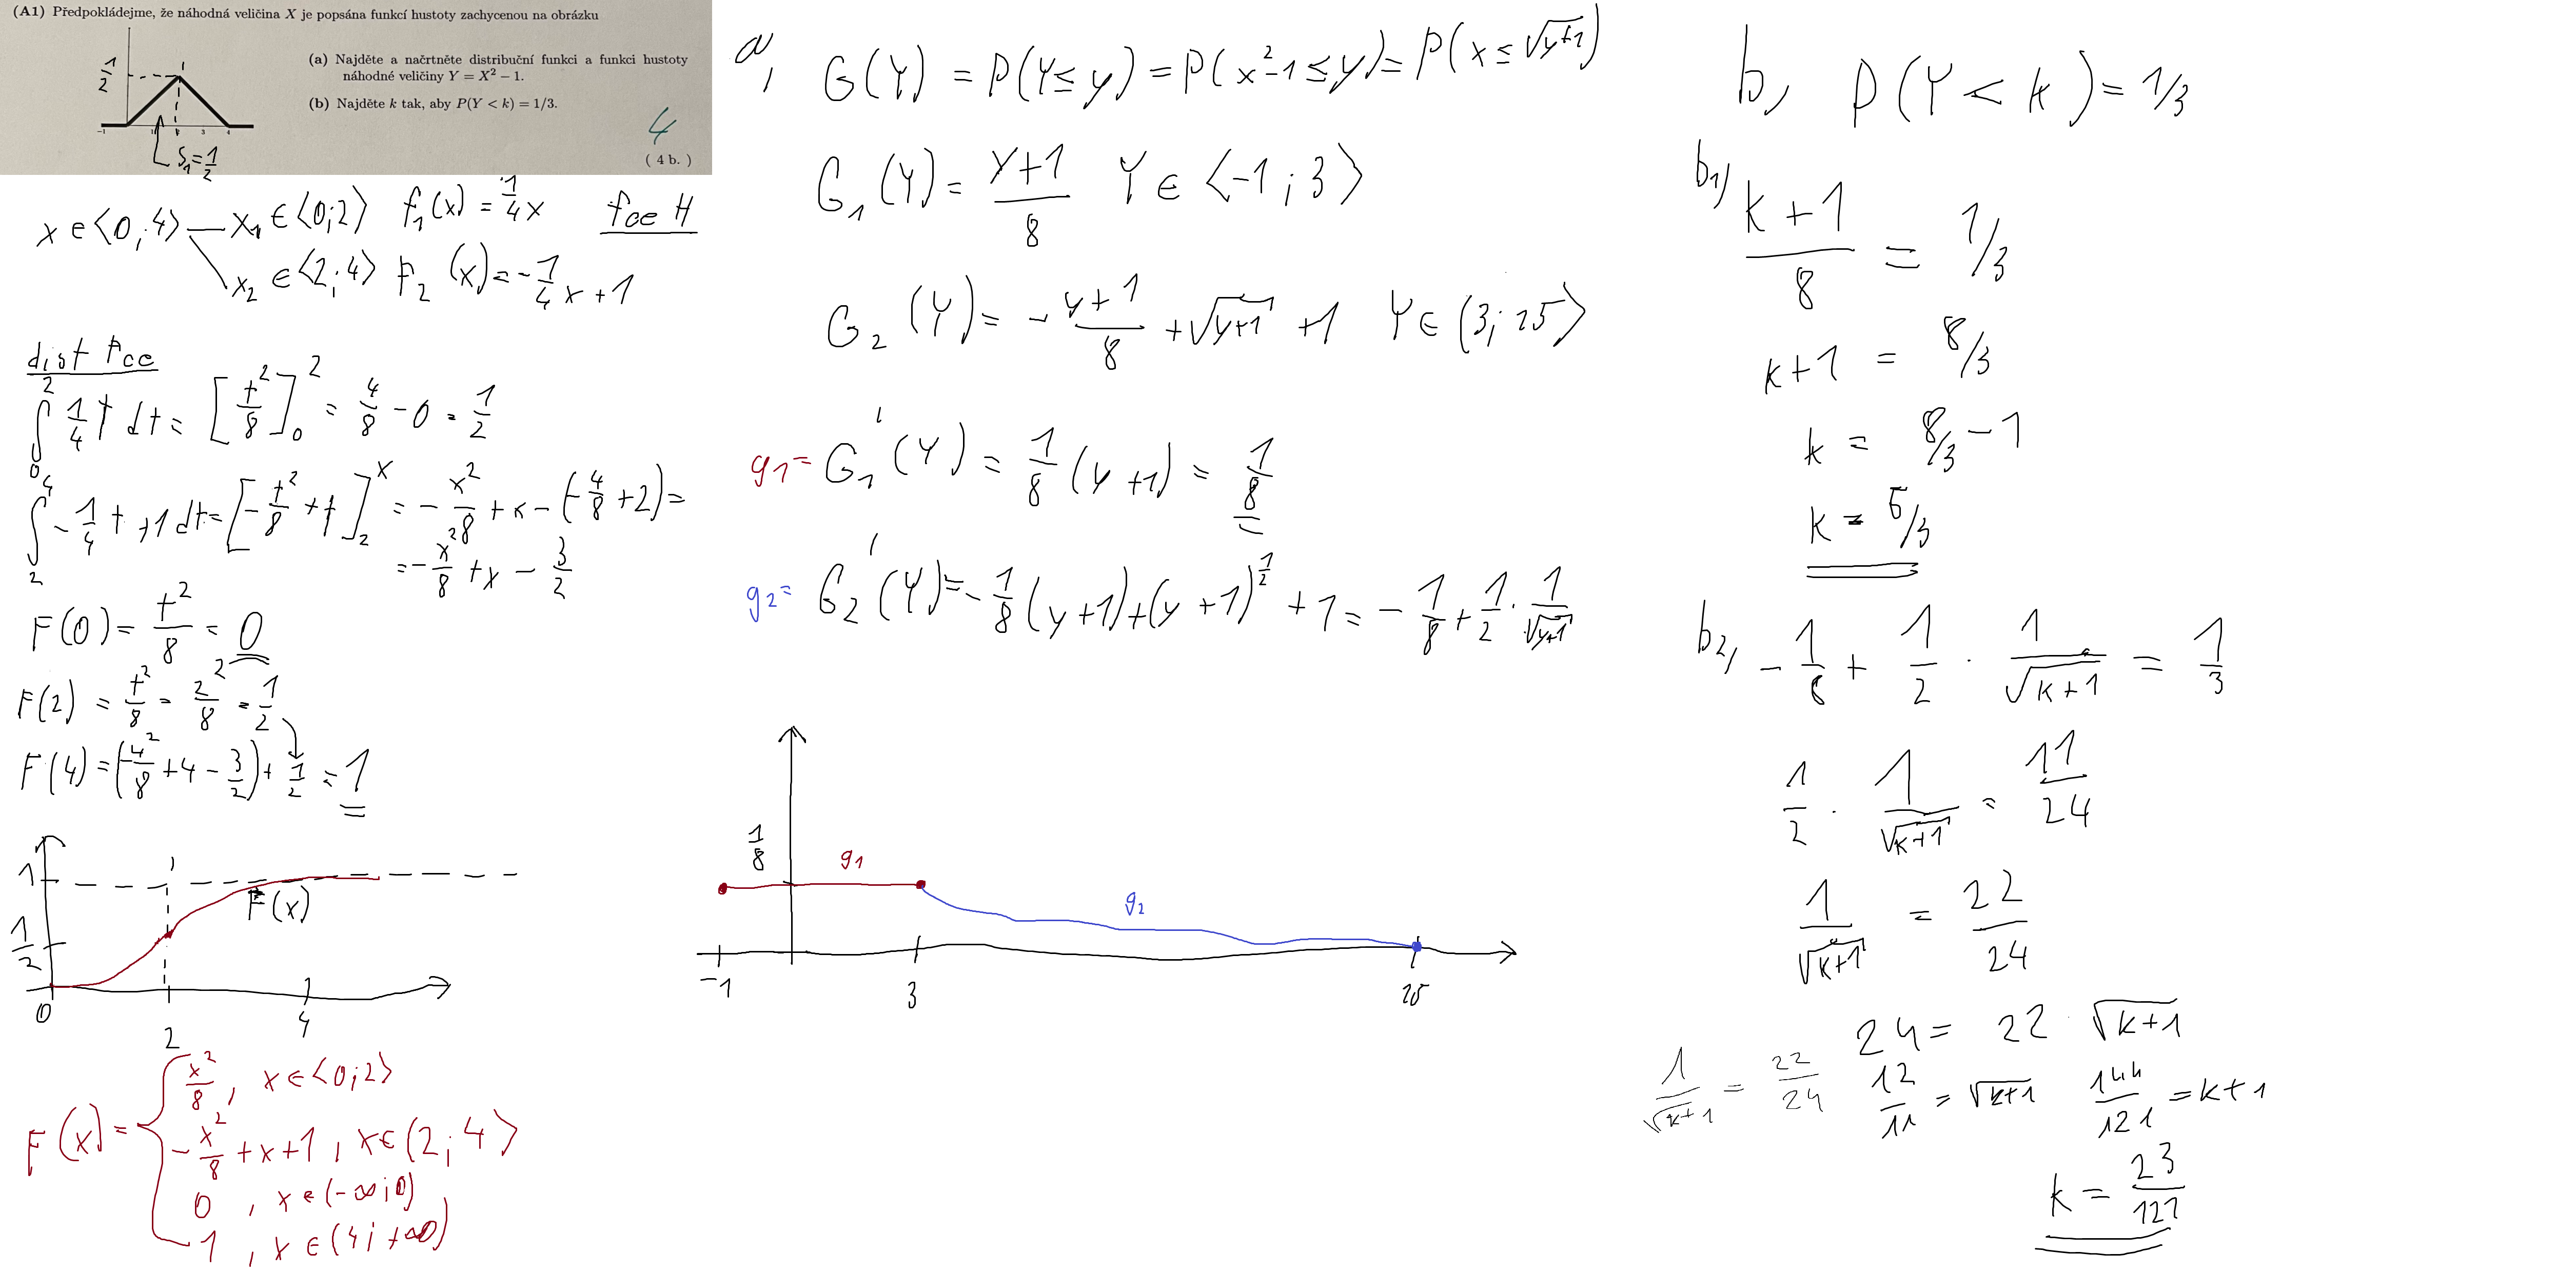 (A1) Předpokládejme, že náhodná veličina X je popsána funkcí hustoty zachycenou na obrázku
(a) Najděte a načrtněte distribuční funkci a funkci hustoty
náhodné veličiny Y = X² − 1.
(b) Najděte k tak, aby P(Y < k) = 1/3.
4
( 4 b. )
1/2
-1 1 2 3 4
S₁ = 1/2
x ∈ ⟨0; 4⟩ — x₁ ∈ ⟨0;2⟩ f₁(x) = 1/4 x fce H
x₂ ∈ ⟨2; 4⟩ F₂ (x) = - 1/4 x + 1
dist fce
∫₀² 1/4 t dt = [t²/8]₀² = 4/8 - 0 = 1/2
∫₂⁴ - 1/4 t + 1 dt = [- t²/8 + t]₂ˣ = - x²/8 + x - (- 4/8 + 2) =
= - x²/8 + x - 3/2
F(0) = t²/8 = 0
F(2) = t²/8 = 2²/8 = 1/2
F(4) = (-4²/8 + 4 - 3/2) + 1/2 = 1
1
F(x)
1/2
0 2 4
F(x) = { x²/8 , x ∈ ⟨0;2⟩
- x²/8 + x + 1 , x ∈ (2; 4⟩
0 , x ∈ (-∞;0)
1 , x ∈ (4; +∞)
a,
G(Y) = P(Y ≤ y) = P(x²-1 ≤ y) = P(x ≤ √y+1)
G₁(Y) = y+1/8 Y ∈ ⟨-1; 3⟩
G₂(Y) = - y+1/8 + √y+1 + 1 Y ∈ (3; 15⟩
g₁ = G₁'(Y) = 1/8 (y+1) = 1/8
g₂ = G₂'(Y) = - 1/8 (y+1) + (y+1)^1/2 + 1 = - 1/8 + 1/2 · 1/√y+1
1/8
g₁
g₂
-1 3 15
b, P(Y < k) = 1/3
b1)
k+1/8 = 1/3
k+1 = 8/3
k = 8/3 - 1
k = 5/3
b2, - 1/8 + 1/2 · 1/√k+1 = 1/3
1/2 · 1/√k+1 = 11/24
1/√k+1 = 22/24
24 = 22 · √k+1
1/√k+1 = 22/24 12/11 = √k+1 144/121 = k+1
k = 23/121